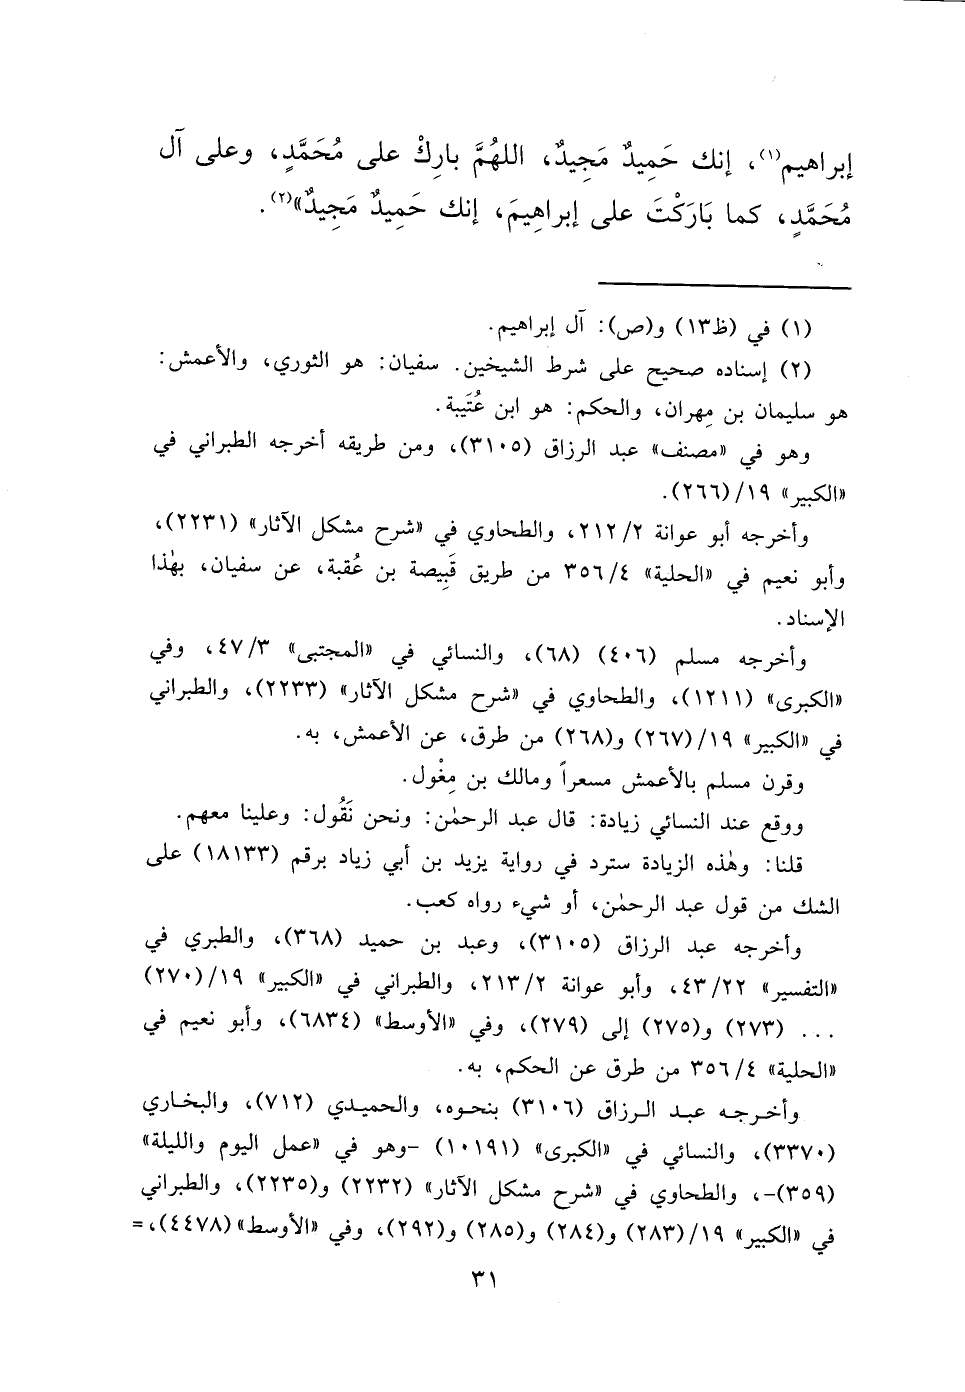 إبراهيم(١)، إنك حَمِيدٌ مَجِيدٌ، اللهُمَّ بارِكْ على مُحَمَّدٍ، وعلى آل
مُحَمَّدٍ، كما بَارَكْتَ على إبراهِيمَ، إنك حَمِيدٌ مَجِيدٌ»(٢).
(١) في (ظ١٣) و(ص): آل إبراهيم.
(٢) إسناده صحيح على شرط الشيخين. سفيان: هو الثوري، والأعمش:
هو سليمان بن مِهران، والحكم: هو ابن عُتَيبة.
وهو في «مصنف» عبد الرزاق (٣١٠٥)، ومن طريقه أخرجه الطبراني في
«الكبير» ١٩/(٢٦٦).
وأخرجه أبو عوانة ٢/ ٢١٢، والطحاوي في «شرح مشكل الآثار» (٢٢٣١)،
وأبو نعيم في «الحلية» ٤/ ٣٥٦ من طريق قَبِيصة بن عُقبة، عن سفيان، بهٰذا
الإسناد.
وأخرجه مسلم (٤٠٦) (٦٨)، والنسائي في «المجتبى» ٣/ ٤٧، وفي
«الكبرى» (١٢١١)، والطحاوي في «شرح مشكل الآثار» (٢٢٣٣)، والطبراني
في «الكبير» ١٩/(٢٦٧) و(٢٦٨) من طرق، عن الأعمش، به.
وقرن مسلم بالأعمش مسعراً ومالك بن مِغْول.
ووقع عند النسائي زيادة: قال عبد الرحمٰن: ونحن نَقُول: وعلينا معهم.
قلنا: وهٰذه الزيادة سترد في رواية يزيد بن أبي زياد برقم (١٨١٣٣) على
الشك من قول عبد الرحمٰن، أو شيء رواه كعب.
وأخرجه عبد الرزاق (٣١٠٥)، وعبد بن حميد (٣٦٨)، والطبري في
«التفسير» ٢٢/ ٤٣، وأبو عوانة ٢/ ٢١٣، والطبراني في «الكبير» ١٩/(٢٧٠)
... (٢٧٣) و(٢٧٥) إلى (٢٧٩)، وفي «الأوسط» (٦٨٣٤)، وأبو نعيم في
«الحلية» ٤/ ٣٥٦ من طرق عن الحكم، به.
وأخرجه عبد الرزاق (٣١٠٦) بنحوه، والحميدي (٧١٢)، والبخاري
(٣٣٧٠)، والنسائي في «الكبرى» (١٠١٩١) -وهو في «عمل اليوم والليلة»
(٣٥٩)-، والطحاوي في «شرح مشكل الآثار» (٢٢٣٢) و(٢٢٣٥)، والطبراني
في «الكبير» ١٩/(٢٨٣) و(٢٨٤) و(٢٨٥) و(٢٩٢)، وفي «الأوسط» (٤٤٧٨)، =
٣١